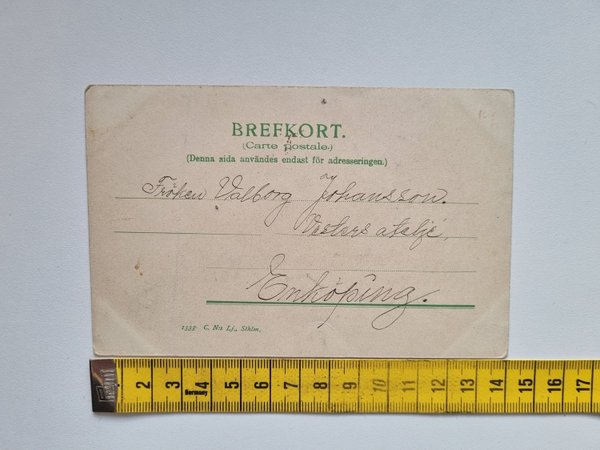 BREFKORT.
(Carte postale.)
(Denna sida användes endast för adresseringen.)
Fröken Valborg Johansson.
Enköping.
1335 C. N:s Lj., Sthlm.
2 3 4 5 6 7 8 9 10 11 12 13 14 15 16 17
Germany